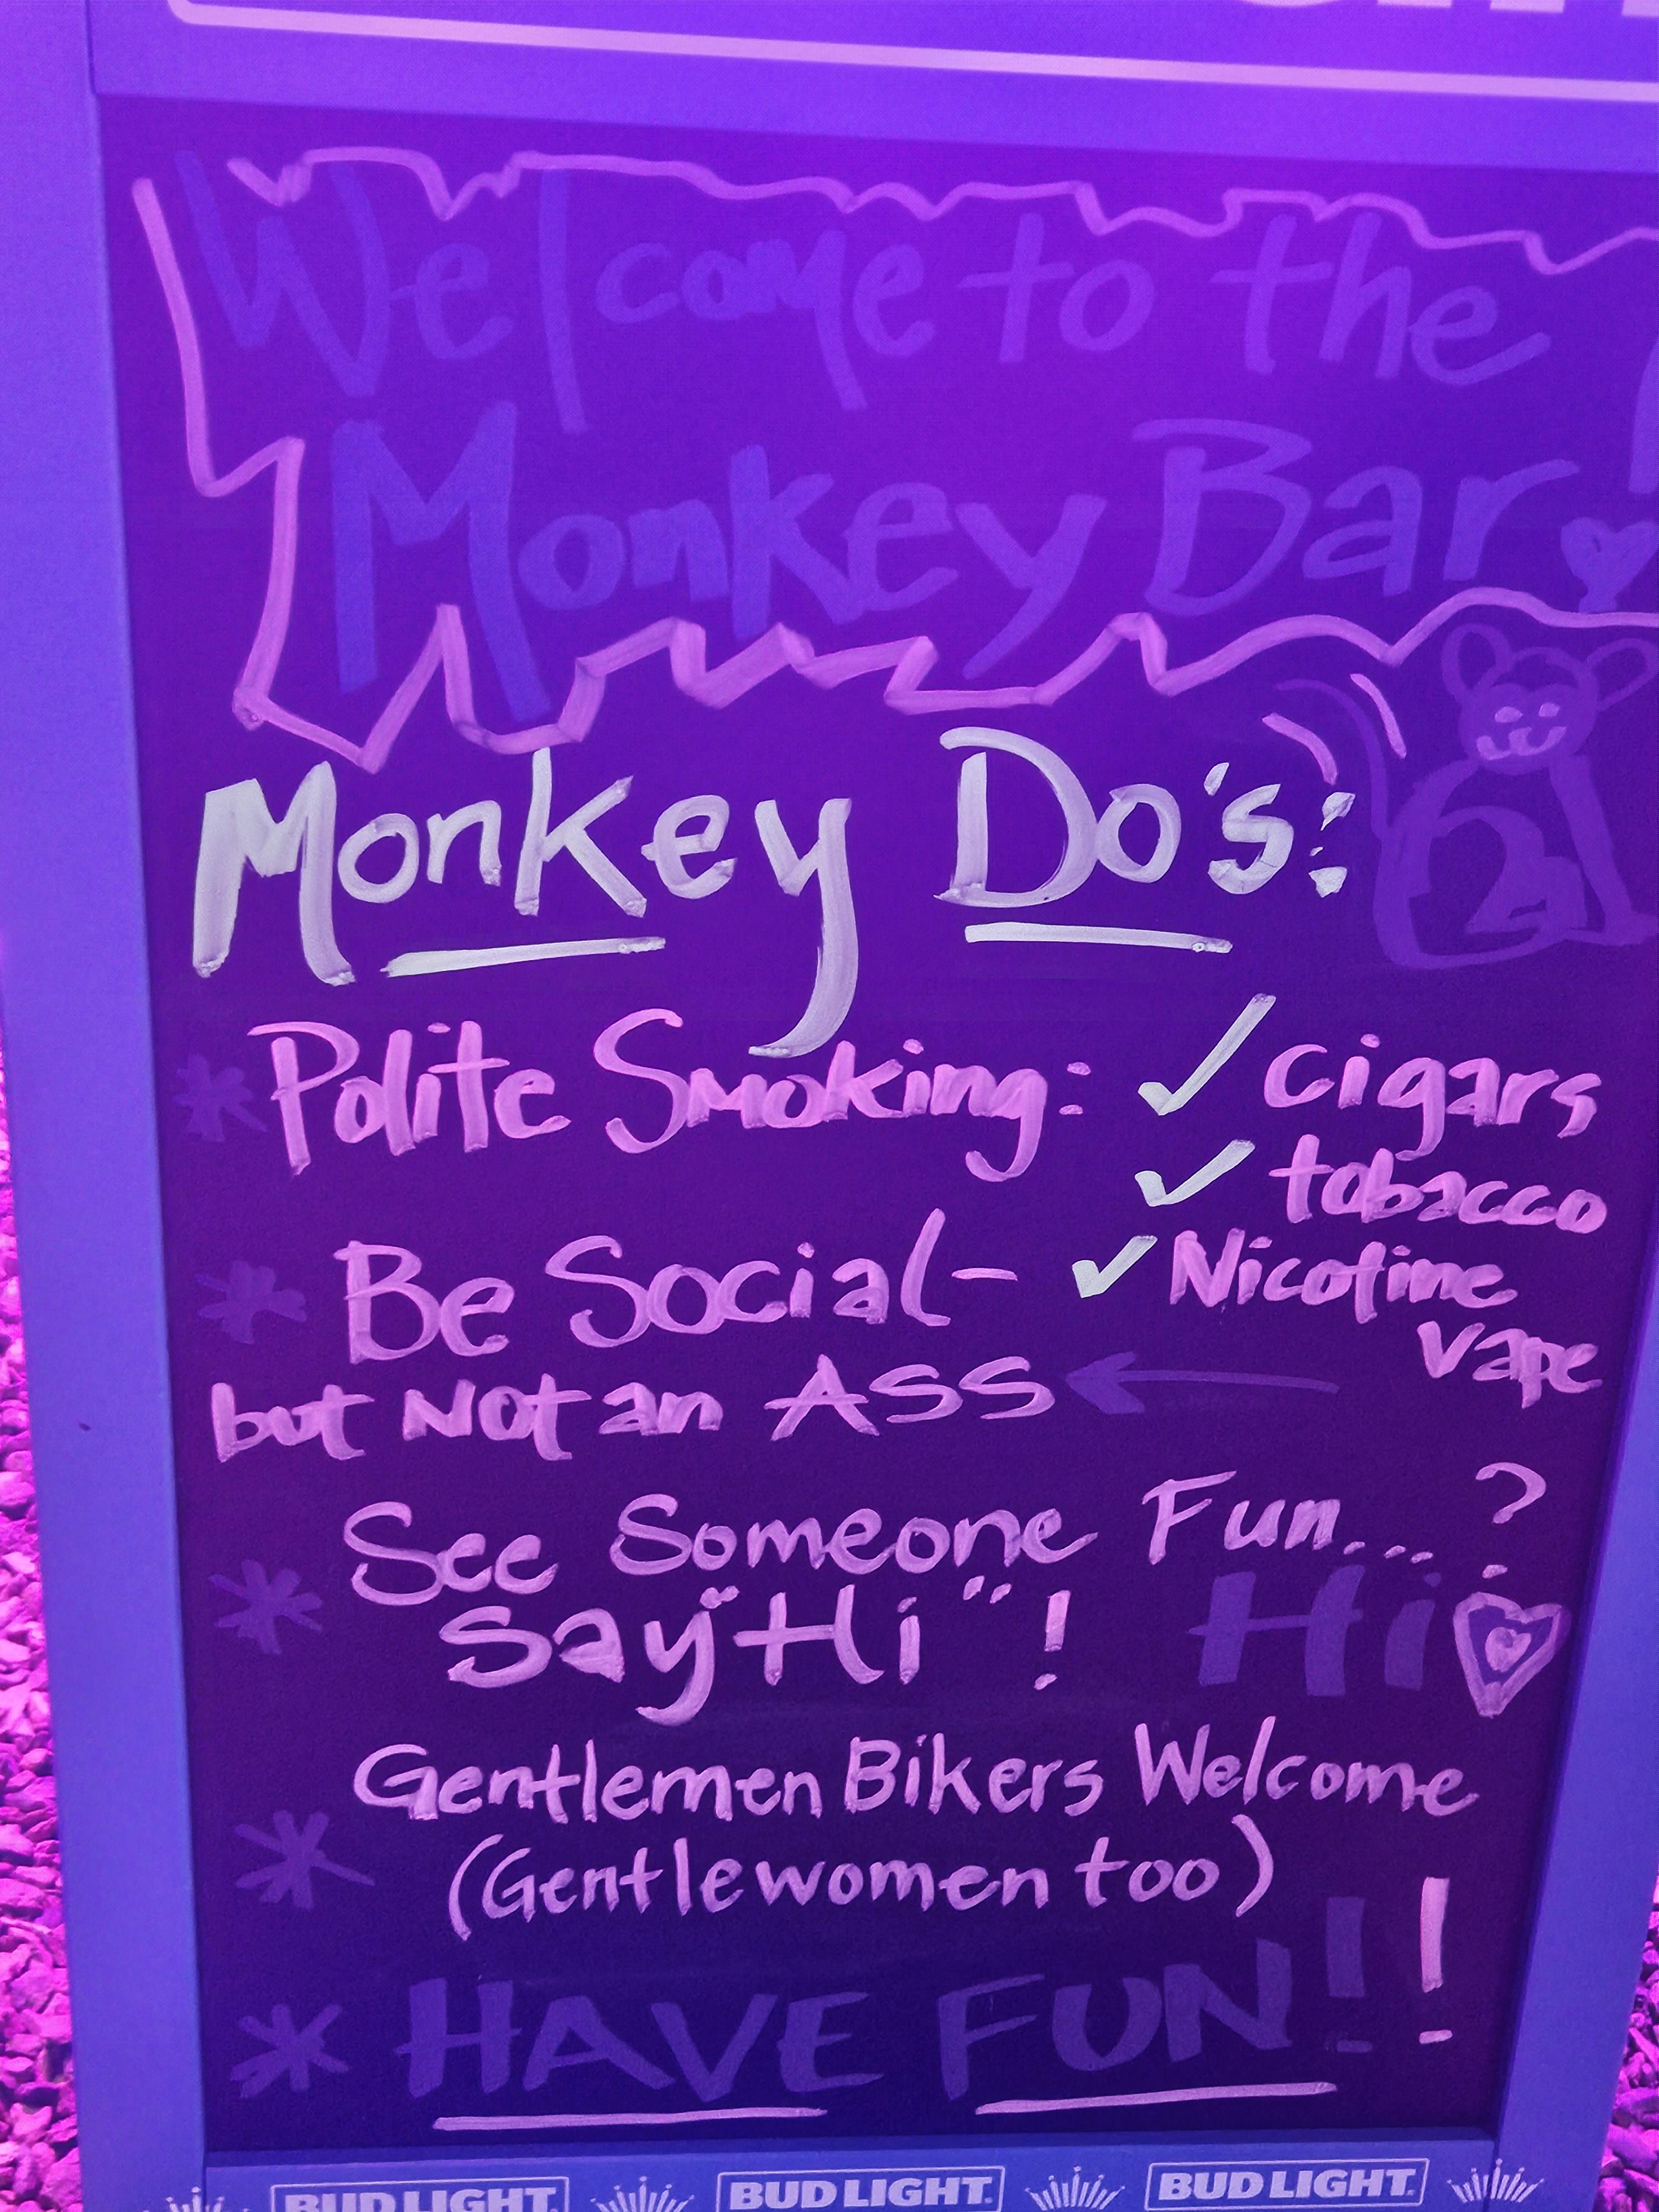 Welcome to the
Monkey Bar!
Monkey Do's:
* Polite Smoking: ✓ cigars
✓ tobacco
* Be Social- ✓ Nicotine
vape
but Not an ASS ←
* See Someone Fun...?
Say "Hi"! Hi
* Gentlemen Bikers Welcome
(Gentlewomen too)
* HAVE FUN!!
BUD LIGHT. BUD LIGHT. BUD LIGHT.